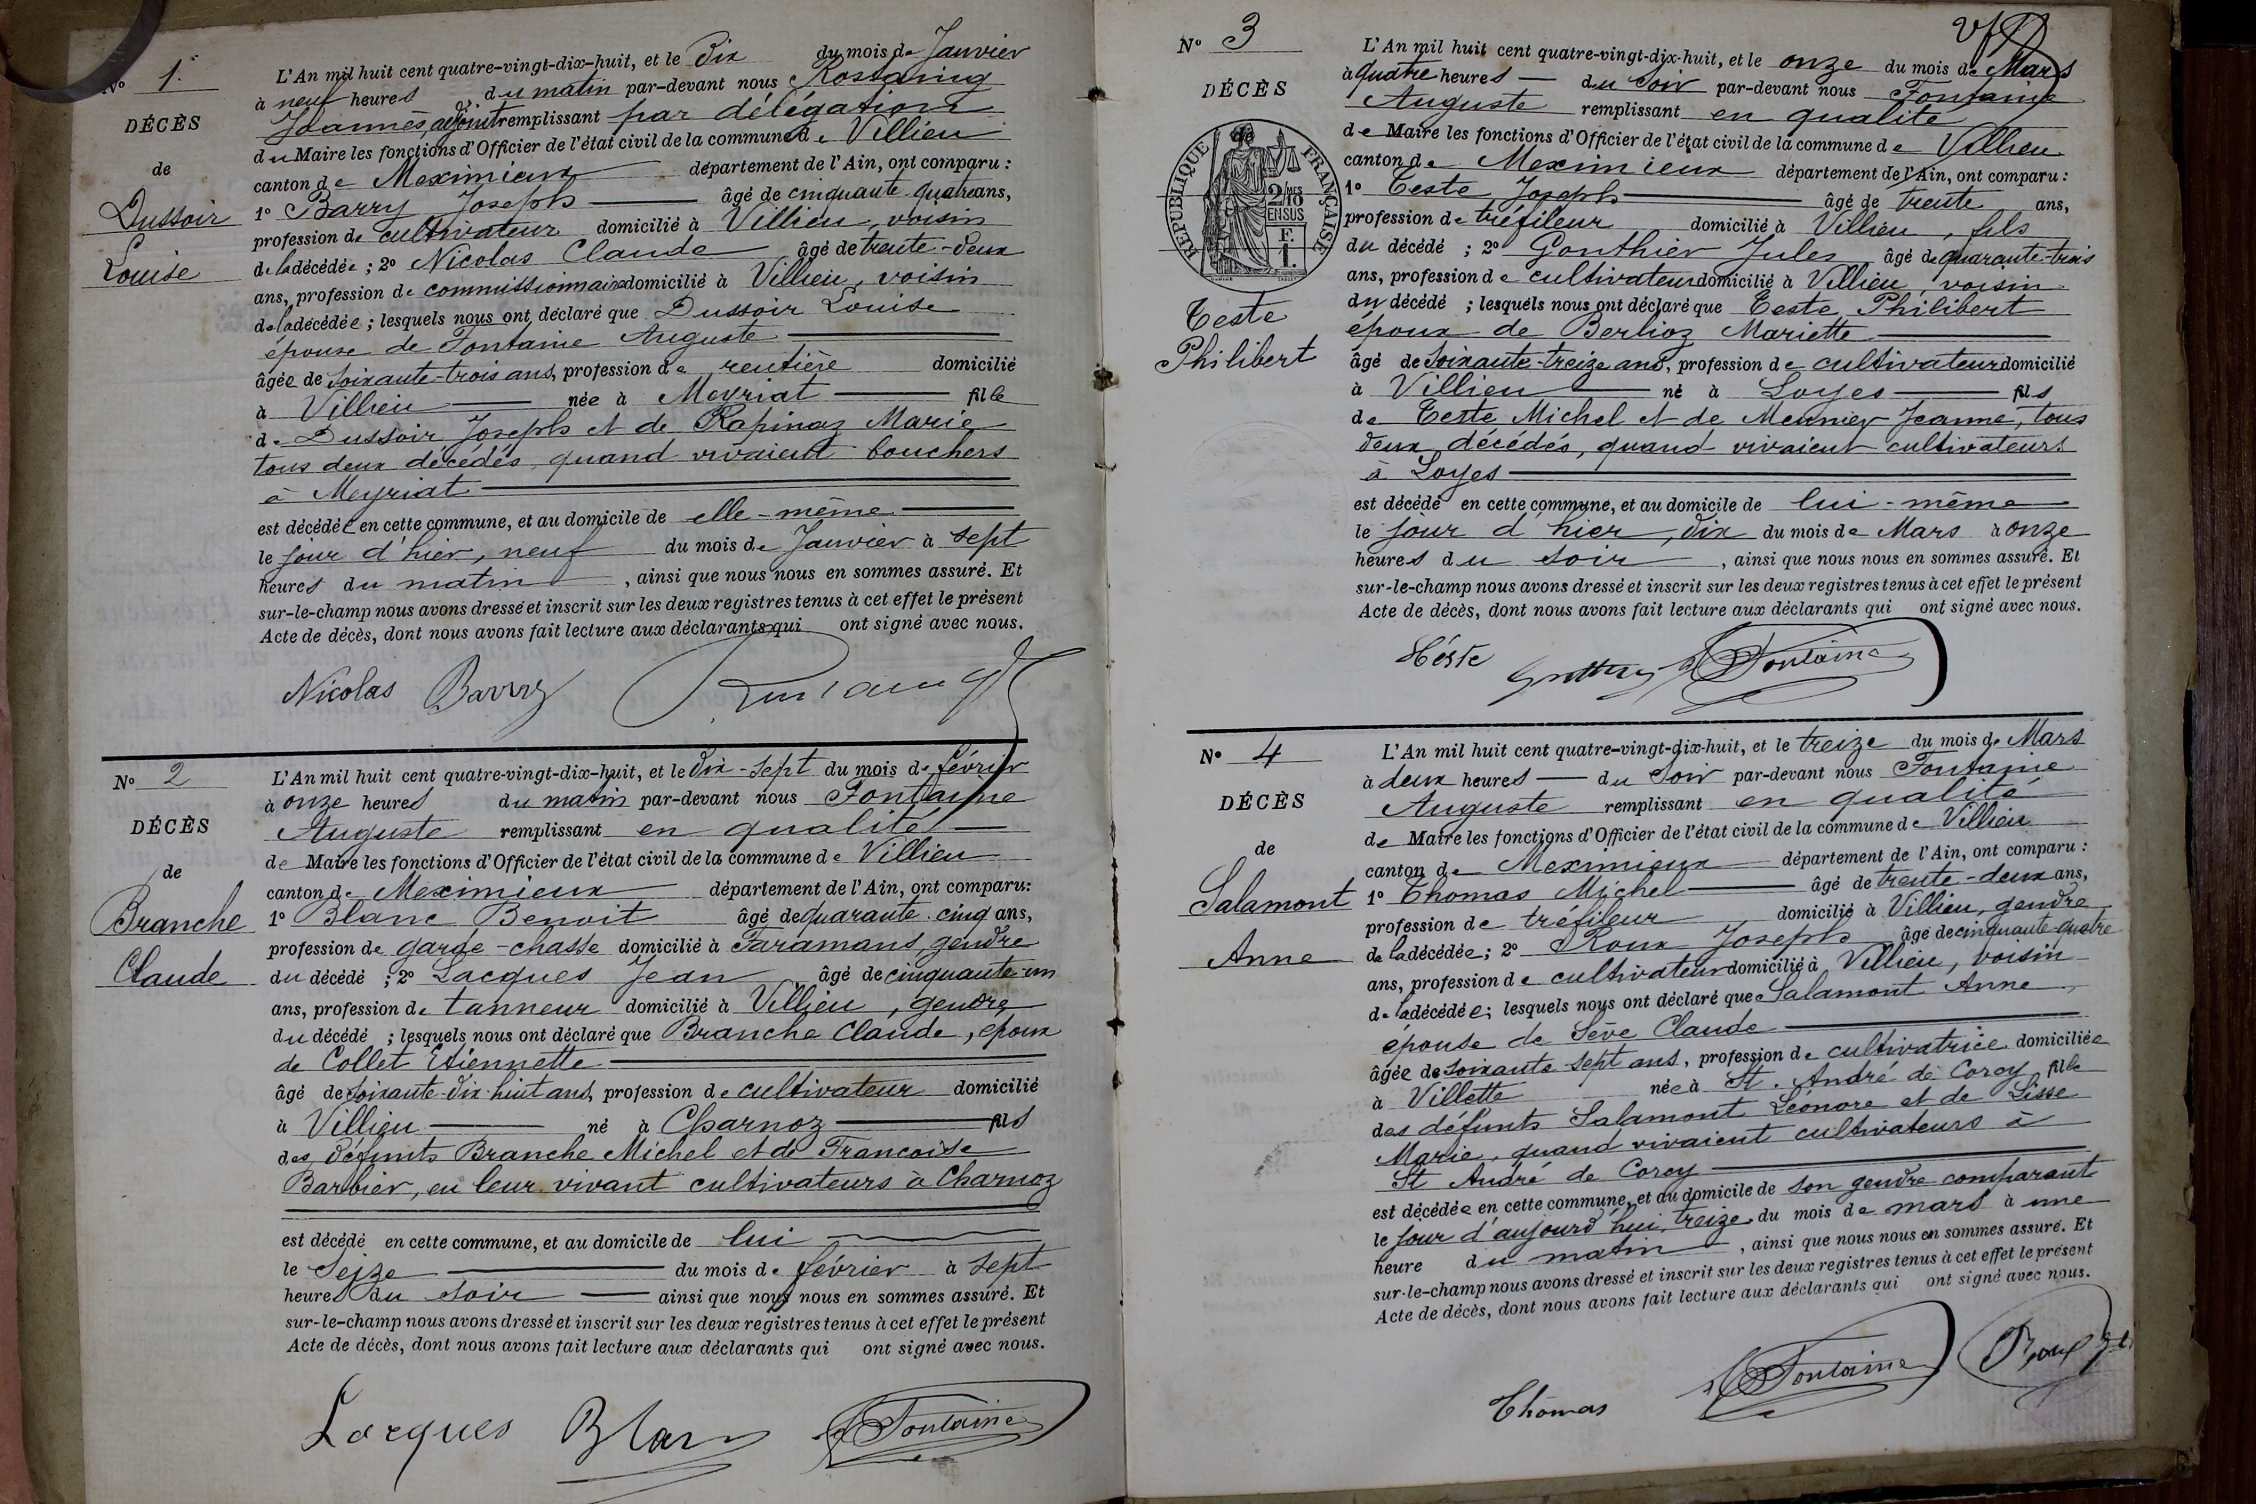 N° 1.
DÉCÈS
de
Dussoir
Louise
L'An mil huit cent quatre-vingt-dix-huit, et le Dix du mois de Janvier
à neuf heures du matin par-devant nous
Joannès, adjoint remplissant par délégation
du Maire les fonctions d'Officier de l'état civil de la commune de Villieu
canton de Meximieux département de l'Ain, ont comparu :
1° Barry Joseph âgé de cinquante-quatre ans,
profession de cultivateur domicilié à Villieu, voisin
de la décédée ; 2° Nicolas Claude âgé de trente-deux
ans, profession de commissionnaire domicilié à Villieu, voisin
de la décédée ; lesquels nous ont déclaré que Dussoir Louise
épouse de Fontaine Auguste
âgée de soixante-trois ans, profession de rentière domicilié
à Villieu née à Meyriat fille
de Dussoir Joseph et de Rapinaz Marie
tous deux décédés, quand vivaient bouchers
à Meyriat
est décédée en cette commune, et au domicile de elle-même
le jour d'hier, neuf du mois de Janvier à sept
heures du matin, ainsi que nous nous en sommes assuré. Et
sur-le-champ nous avons dressé et inscrit sur les deux registres tenus à cet effet le présent
Acte de décès, dont nous avons fait lecture aux déclarants qui ont signé avec nous.
Nicolas Barry
N° 2
DÉCÈS
de
Branche
Claude
L'An mil huit cent quatre-vingt-dix-huit, et le dix-sept du mois de février
à onze heures du matin par-devant nous Fontaine
Auguste remplissant en qualité
de Maire les fonctions d'Officier de l'état civil de la commune de Villieu
canton de Meximieux département de l'Ain, ont comparu :
1° Blanc Benoit âgé de quarante-cinq ans,
profession de garde-chasse domicilié à Faramans, gendre
du décédé ; 2° Lacques Jean âgé de cinquante-un
ans, profession de tanneur domicilié à Villieu, gendre
du décédé ; lesquels nous ont déclaré que Branche Claude, époux
de Collet Etiennette
âgé de soixante-dix-huit ans, profession de cultivateur domicilié
à Villieu né à Charnoz fils
des défunts Branche Michel et de Francoise
Barbier, en leur vivant cultivateurs à Charnoz
est décédé en cette commune, et au domicile de lui
le Seize du mois de février à sept
heures du soir ainsi que nous nous en sommes assuré. Et
sur-le-champ nous avons dressé et inscrit sur les deux registres tenus à cet effet le présent
Acte de décès, dont nous avons fait lecture aux déclarants qui ont signé avec nous.
Lacques Blanc Fontaine
N° 3
DÉCÈS
de
RÉPUBLIQUE FRANÇAISE
2/10 MES
EN SUS
F.
1.
Teste
Philibert
L'An mil huit cent quatre-vingt-dix-huit, et le onze du mois de Mars
à quatre heures du soir par-devant nous Fontaine
Auguste remplissant en qualité
de Maire les fonctions d'Officier de l'état civil de la commune de Villieu
canton de Meximieux département de l'Ain, ont comparu :
1° Teste Joseph âgé de trente ans,
profession de tréfileur domicilié à Villieu, fils
du décédé ; 2° Gonthier Jules âgé de quarante-trois
ans, profession de cultivateur domicilié à Villieu, voisin
du décédé ; lesquels nous ont déclaré que Teste Philibert
époux de Berlioz Mariette
âgé de soixante-treize ans, profession de cultivateur domicilié
à Villieu né à Loyes fils
de Teste Michel et de Meunier Jeanne, tous
deux décédés, quand vivaient cultivateurs
à Loyes
est décédé en cette commune, et au domicile de lui-même
le jour d'hier, dix du mois de Mars à onze
heures du soir, ainsi que nous nous en sommes assuré. Et
sur-le-champ nous avons dressé et inscrit sur les deux registres tenus à cet effet le présent
Acte de décès, dont nous avons fait lecture aux déclarants qui ont signé avec nous.
Téste Fontaine
N° 4
DÉCÈS
de
Salamont
Anne
L'An mil huit cent quatre-vingt-dix-huit, et le treize du mois de Mars
à deux heures du soir par-devant nous Fontaine
Auguste remplissant en qualité
de Maire les fonctions d'Officier de l'état civil de la commune de Villieu
canton de Meximieux département de l'Ain, ont comparu :
1° Thomas Michel âgé de trente-deux ans,
profession de tréfileur domicilié à Villieu, gendre
de la décédée ; 2° Roux Joseph âgé de cinquante-quatre
ans, profession de cultivateur domicilié à Villieu, voisin
de la décédée ; lesquels nous ont déclaré que Salamont Anne
épouse de Sève Claude
âgée de soixante-sept ans, profession de cultivatrice domiciliée
à Villette née à St. André de Corcy fille
des défunts Salamont Léonore et de Lisse
Marie, quand vivaient cultivateurs à
St André de Corcy
est décédée en cette commune, et au domicile de son gendre comparant
le jour d'aujourd'hui, treize du mois de mars à une
heure du matin, ainsi que nous nous en sommes assuré. Et
sur-le-champ nous avons dressé et inscrit sur les deux registres tenus à cet effet le présent
Acte de décès, dont nous avons fait lecture aux déclarants qui ont signé avec nous.
Thomas Fontaine Roux